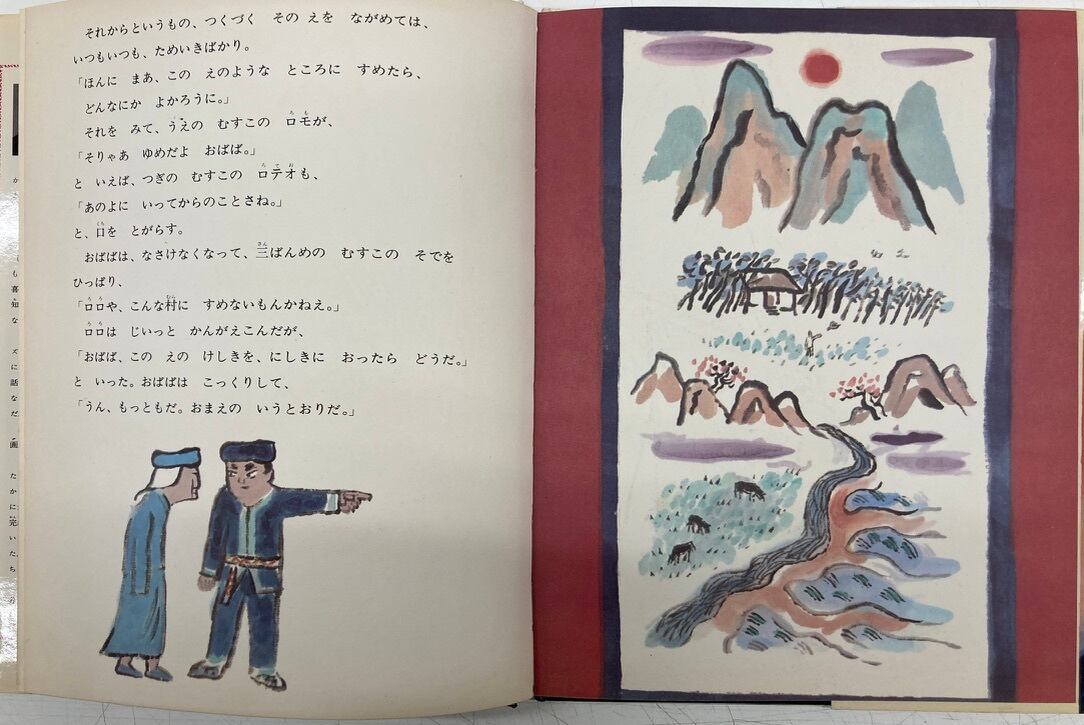 それからというもの、つくづく そのえを ながめては、
いつもいつも、ためいきばかり。
「ほんに まあ、この えのような ところに すめたら、
どんなにか よかろうに。」
それを みて、うえの むすこの ロモが、
「そりゃあ ゆめだよ おばば。」
と いえば、つぎの むすこの ロテオも、
「あのよに いってからのことさね。」
と、口を とがらす。
おばばは、なさけなくなって、三ばんめの むすこの そでを
ひっぱり、
「ロロや、こんな村に すめないもんかねえ。」
ロロは じいっと かんがえこんだが、
「おばば、この えの けしきを、にしきに おったら どうだ。」
と いった。おばばは こっくりして、
「うん、もっともだ。おまえの いうとおりだ。」